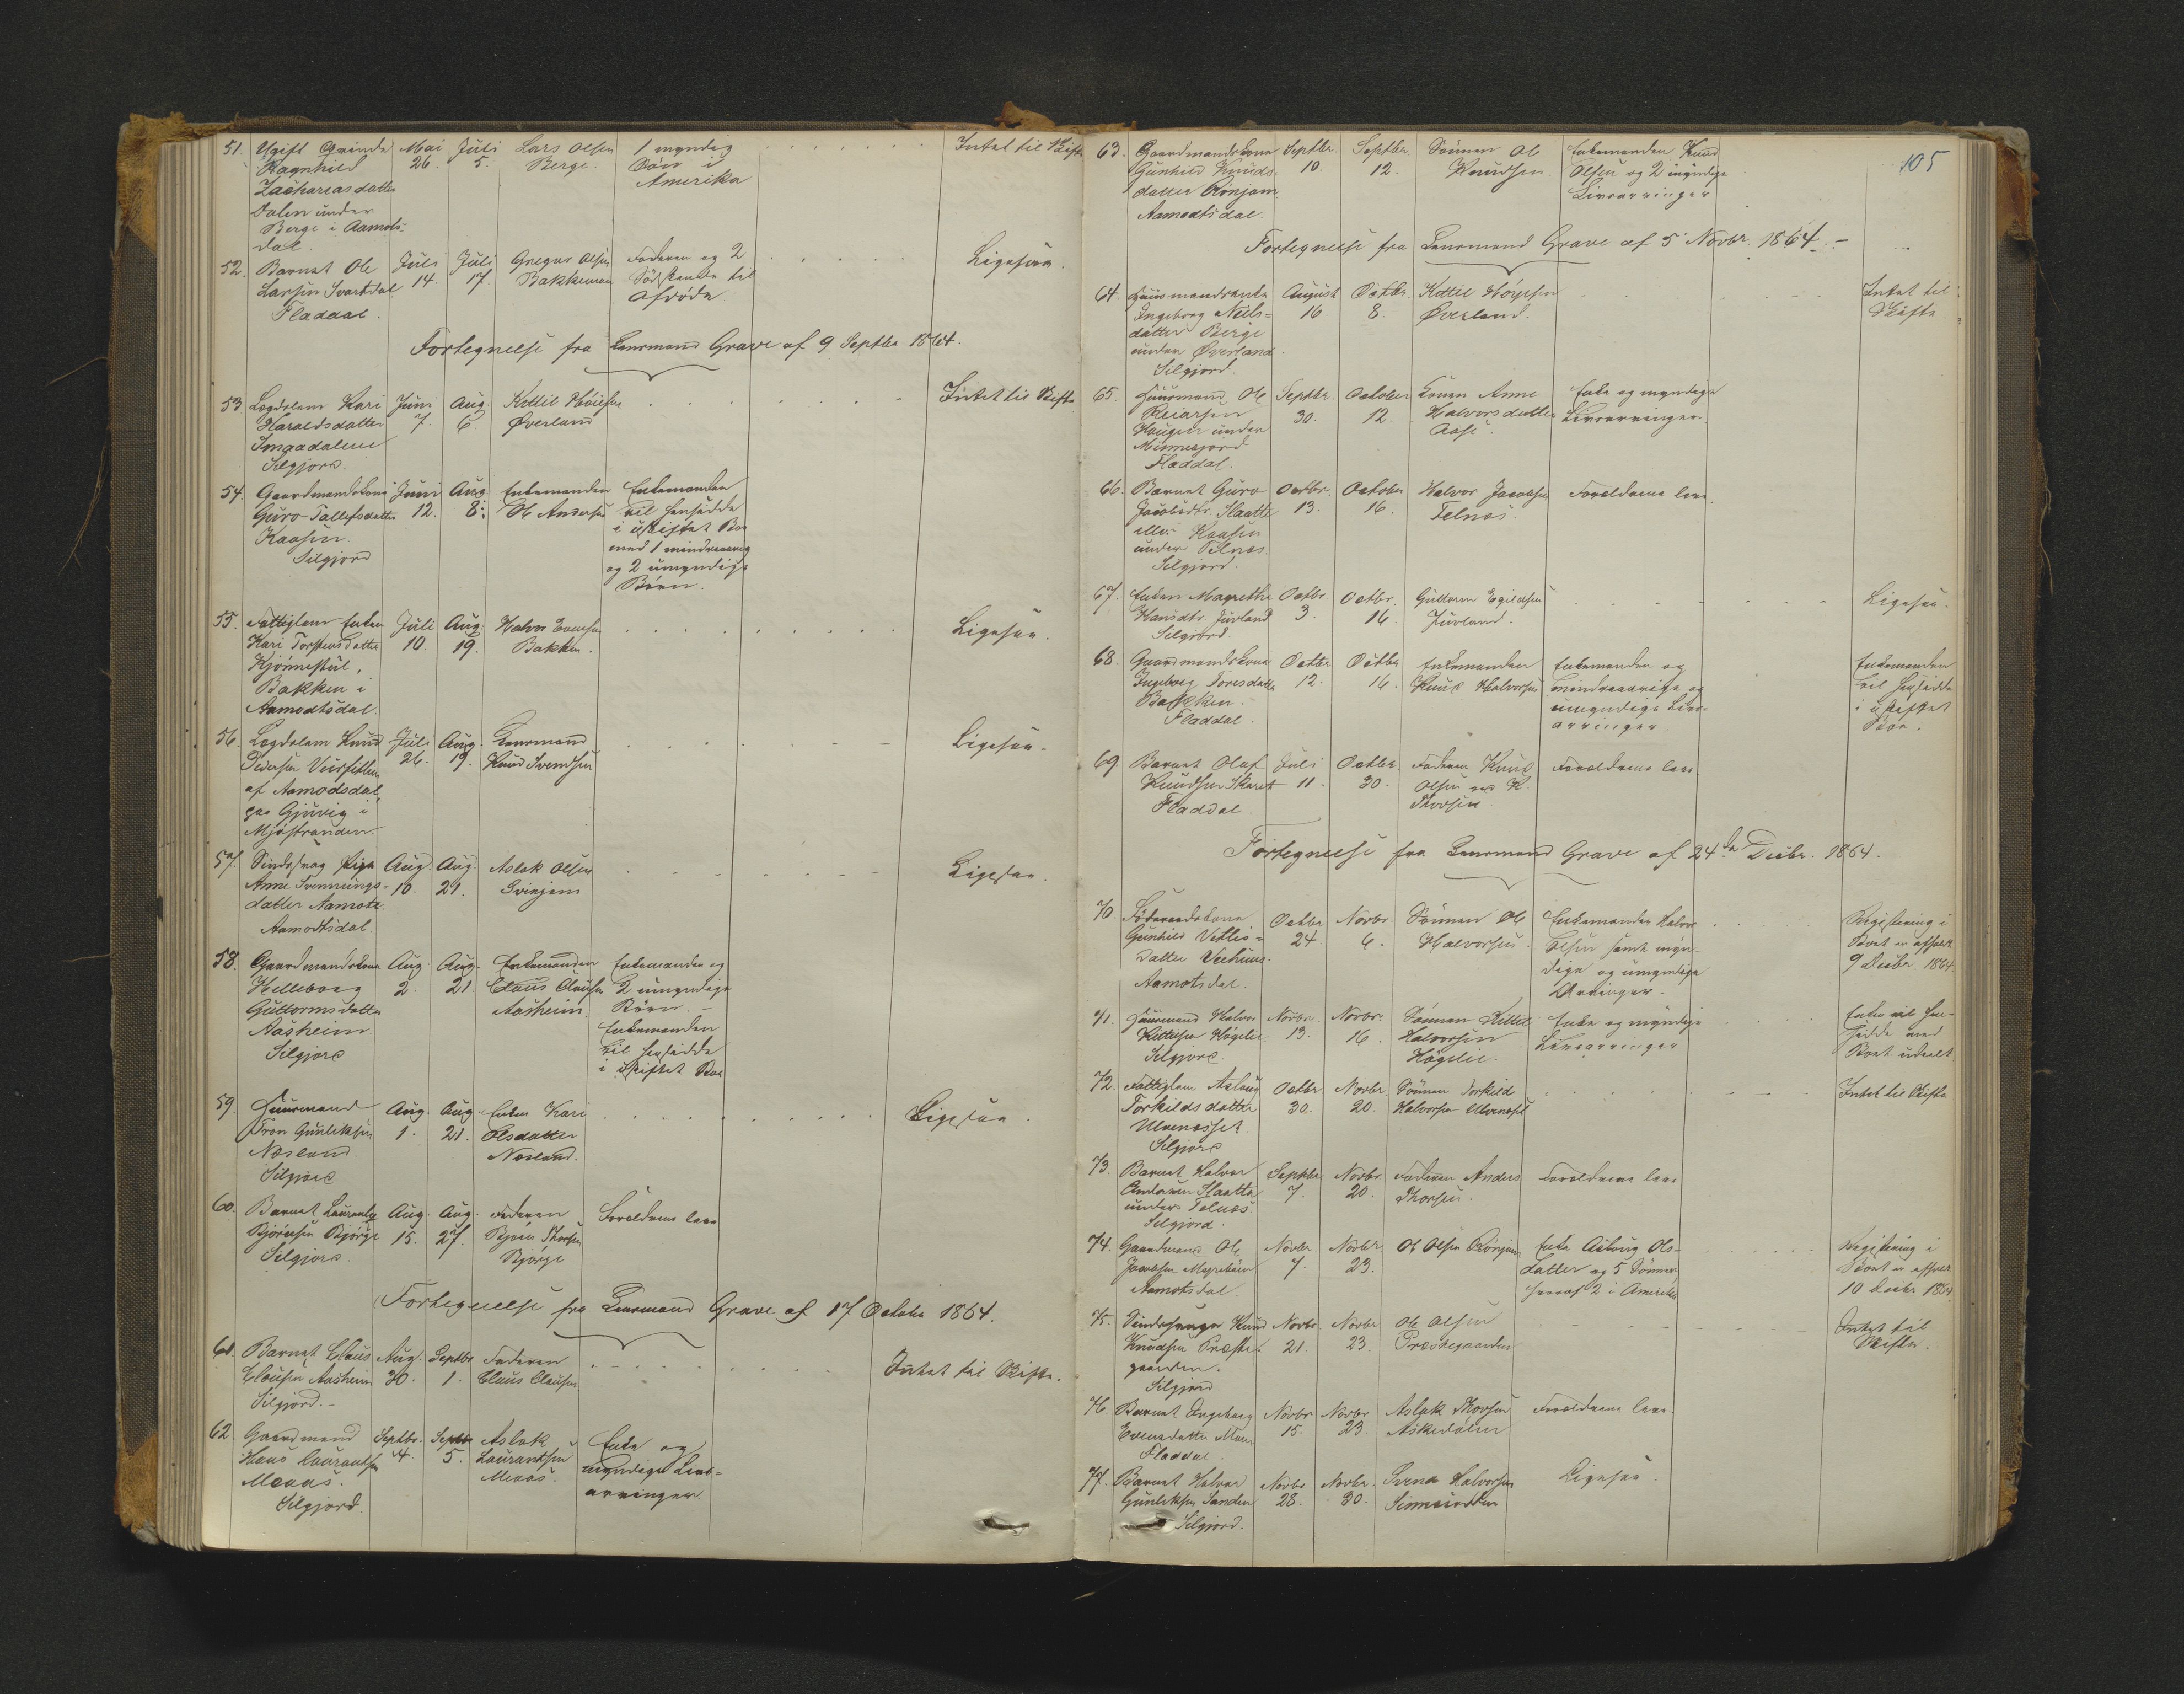 51. Ugift Qvinde Mai Juli Lars Olsen 1 myndig Intet til Skifte
Ragnhild 26. 5. Berge. Søn i
Zachariasdatter Amerika
Dalen under
Berge i Aamots-
dal.
52. Barnet Ole Juli Juli Gregar Olsen Faderen og 2 Ligesaa.
Larsen Svartdal 14. 17. Bakkemoen Sødskende til
Fladdal. Afdøde.
Fortegnelse fra Lensmand Grave af 9 Septbr 1864.
53 Lægdslem Kari Juni Aug. Kettil Høiesen Intet til Skifte
Haraldsdatter 7. 6. Øverland
Silgjord.
54. Gaardmandskone Juni Aug. Enkemanden Enkemanden
Guro Tallefsdatter 12. 8. Ole Andersen vil hensidde
Kaasen. i uskiftet Bo
Silgjord med 1 mindreaarig
og 2 umyndige
Børn.
55. Fattiglem Enken Juli Aug. Halvor Ligesaa.
Kari Torstensdatter 10. 19. Bakken.
Kjønnestul,
Bakken i
Aamodtsdal
56. Lægdslem Knud Juli Aug. Lensmand Ligesaa.
Pedersen 26. 19. Knud Svendsen
af Aamodsdal,
paa Gjuvig i
Mjøstranden
57. Sindssvag Pige Aug. Aug. Aslak Olsen Ligesaa.
Anne Svennungs- 10. 21.
datter Aamots.
Aamodtsdal.
58. Gaardmandskone Aug. Aug. Enkemanden Enkemanden og
Helleborg 2. 21. Claus Clausen 2 umyndige
Guttormsdatter Aasheim. Børn. -
Aasheim. Enkemanden
Silgjord vil hensidde
i uskiftet Bo
59. Huusmand Aug. Aug. Enken Kari Ligesaa.
Tron Gunleiksen 1. 21. Olsdatter
Nesland. Nesland.
Silgjord
60. Barnet Aug. Aug. Faderen Forældrene leve
Bjørnsen Bjørge 15. 27. Bjørn Thorsen
Silgjord. Bjørge
Fortegnelse fra Lensmand Grave af 17 October 1864.
61. Barnet Claus Aug. Septbr Faderen Intet til Skifte.
Clausen Aasheim 30. 1. Claus Clausen
Silgjord.-
62 Gaardmand Septbr. Septbr Aslak Enke og
Hans Laurantsen 4. 5. Laurantsen myndige Livs-
Moaas. Moaas. arvinger
Silgjord
105
63. Gaardmandskone Septbr Septbr. Sønnen Ole Enkemanden Knud
Gunhild Knuds- 10. 12. Knudsen Olsen og 2 umyndige
datter Rønjom Livsarvinger
Aamodtsdal.
Fortegnelse fra Lensmand Grave af 5 Novbr. 1864.-
64. Huusmandsenke August Octbr. Kittil Høyesen Intet til
Ingeborg Niels- 16. 8. Øverland. Skifte.
datter Berge
under Øverland.
Silgjord.
65. Huusmand Ole Septbr. October Konen Anne Enke og myndige
Reiarsen 30. 12. Halvorsdatter Livsarvinger.
Haugen under Aase.
Fladdal.
66. Barnet Guro Octbr. October Halvor Jacobsen Forældrene leve.
Jacobsdtr. Slaatte 13. 16. Telnæs.
eller Kaasen
under Telnæs
Silgjord.
67. Enken Magrethe Octbr. Octbr. Guttorm Egildsen Ligesaa.
Hansdtr. Juvland 3. 16. Juvland.
Silgjord
68. Gaardmandskone Octbr Octbr Enkemanden Enkemanden og Enkemanden
Ingeborg Toresdatter 12. 16. Knud Halvorsen mindreaarige og vil hensidde
Bakken umyndige Livs- i uskiftet
Fladdal arvinger Boe.
69 Barnet Olaf Juli Octbr Faderen Knud Forældrene leve
Knudsen Skaret 11. 30. Olsen ved K.
Fladdal. Thorsen.
Fortegnelse fra Lensmand Grave af 24de Decbr. 1864.
70. Føderaadskone Octbr Novbr. Sønnen Ole Enkemanden Halvor Registrering i
Gunhild Vetle- 24. 6. Halvorsen. Olsen samt myn- Boet er afholdt
datter Veehuus. dige og umyndige 9 Decbr. 1864.
Aamotsdal. Arvinger.
71. Huusmand Halvor Novbr. Novbr. Sønnen Kittil Enke og myndige Enken vil hen-
Kittilsen Høgelie 13. 16. Halvorsen Livsarvinger sidde med
Silgjord Høgelie. Boet udeelt
72. Fattiglem Aslaug Octbr Novbr. Sønnen Torkild Intet til Skifte
Torkildsdatter 30. 20. Halvorsen Ulvenæset
Ulvenæsset.
Silgjord
73. Barnet Halvor Septbr Novbr Faderen Anders Forældrene leve
Andersen Slaatte 7. 20. Thorsen.
under Telnæs
Silgjord.
74. Gaardmand Ole Novbr. Novbr. Ole Olsen Rønjom Enke Aslaug Ols- Registrering i
Jacobsen 7. 23. datter og 5 Sønner Boet er afholdt
Aamotsdal. hvoraf 2 i Amerika 10 Decbr 1864
75. Sindssvage Knud Novbr. Novbr Ole Olsen Intet til
Knudsen Præste- 21. 23. Præstegaarden Skifte.
gaarden.
Silgjord
76. Barnet Ingeborg Novbr Novbr Aslak Thorsen Forældrene leve.
Evensdatter Moen 15. 23 Askedalen
Fladdal.
77. Barnet Halvor Novbr Novbr. Svend Halvorsen Ligesaa.
Gunleiksen Sanden 28. 30.
Silgjord.